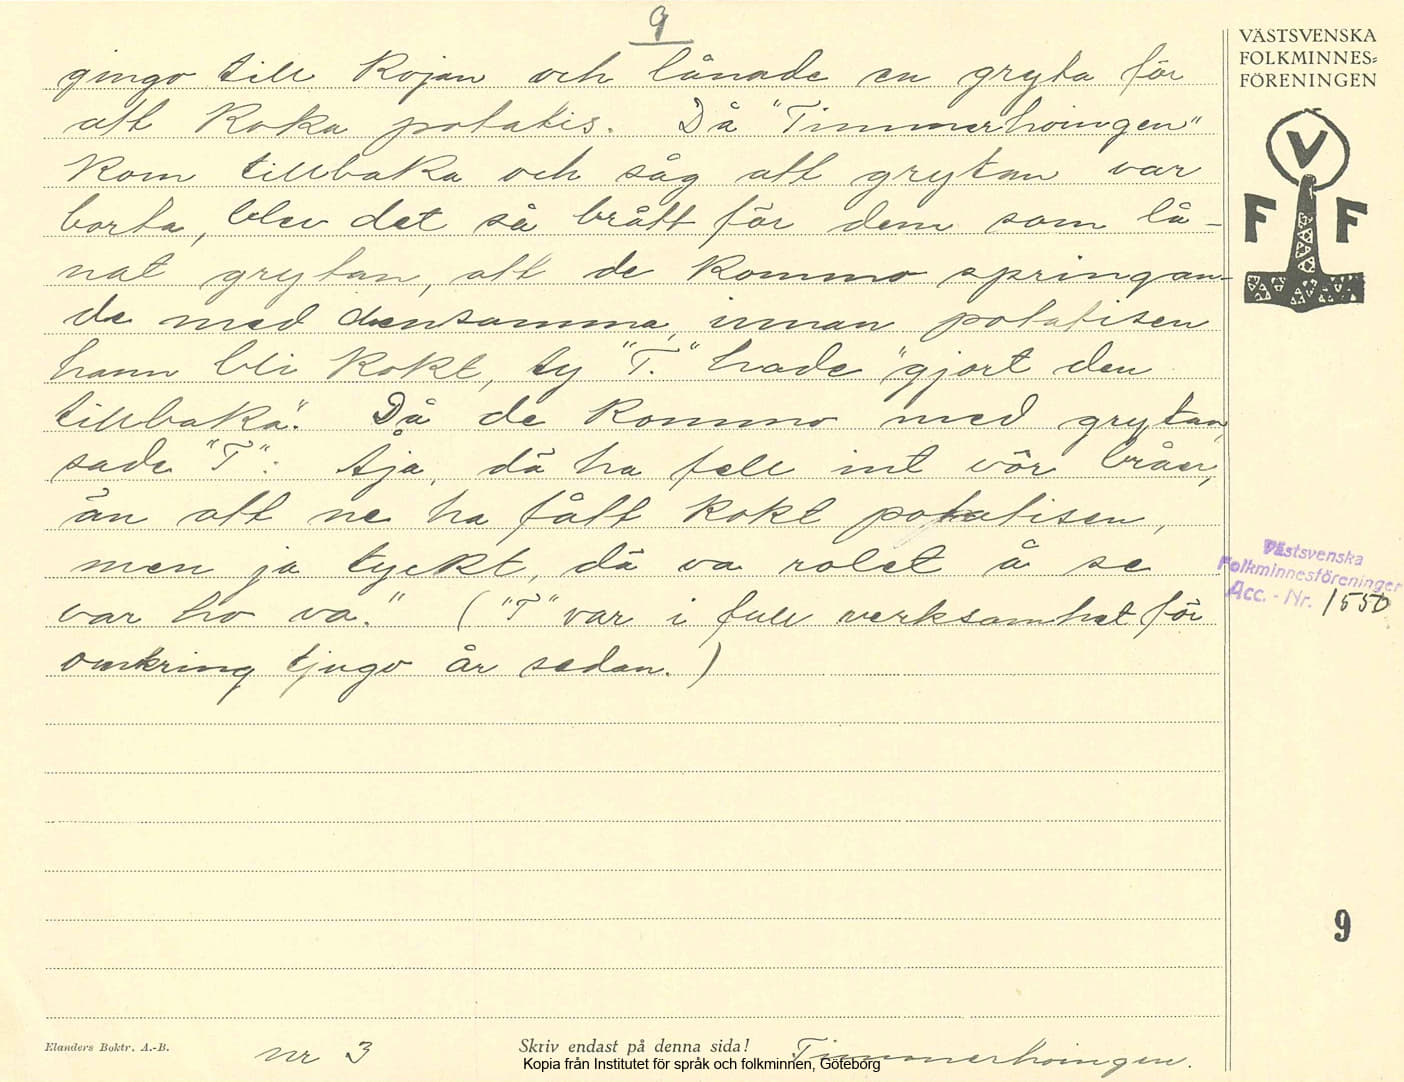 9
gingo till Kojan och lånade en gryta för
att Koka potatis. Då "Timmerhoingen"
Kom tillbaka och såg att grytan var
borta, blev det så brått för dem som lå-
nat grytan, att de Kommo springan-
de med densamma, innan potatisen
hann bli Kokt, ty "T." hade "gjort den
tillbaka". Då de Kommo med grytan,
sade "T": Aja, dä ha fell int vôr bråer,
än att ne ha fått Kokt potatisen,
men ja tyckt, dä va rolet å se
var ho va." ("T" var i full verksamhet för
omkring tjugo år sedan.)
VÄSTSVENSKA
FOLKMINNES=
FÖRENINGEN
V
F F
Västsvenska
Folkminnesföreningen
Acc. - Nr. 1550
9
Elanders Boktr. A.-B.
nr 3
Skriv endast på denna sida!
Timmerhoingen.
Kopia från Institutet för språk och folkminnen, Göteborg